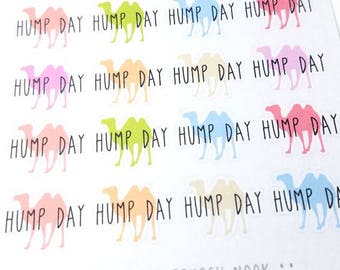 HUMP DAY HUMP DAY HUMP DAY HUMP DAY
HUMP DAY HUMP DAY HUMP DAY HUMP DAY
HUMP DAY HUMP DAY HUMP DAY HUMP DAY
HUMP DAY HUMP DAY HUMP DAY HUMP DAY
NOOK